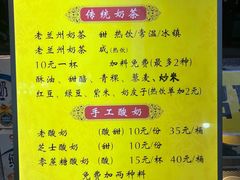 传统奶茶
老兰州奶茶 甜 热饮/常温/冰镇
老兰州奶茶 咸(热饮)
10元一杯 加料免费(最多2种)
酥油、甜醅、青稞、藜麦、炒米
红豆、绿豆、紫米、奶皮子(热饮单加2元)
手工酸奶
老酸奶 (酸甜) 10元/份 35元/桶
芝士酸奶 (甜) 10元/份
零蔗糖酸奶 (酸) 15元/杯 40元/桶
免费加两种料